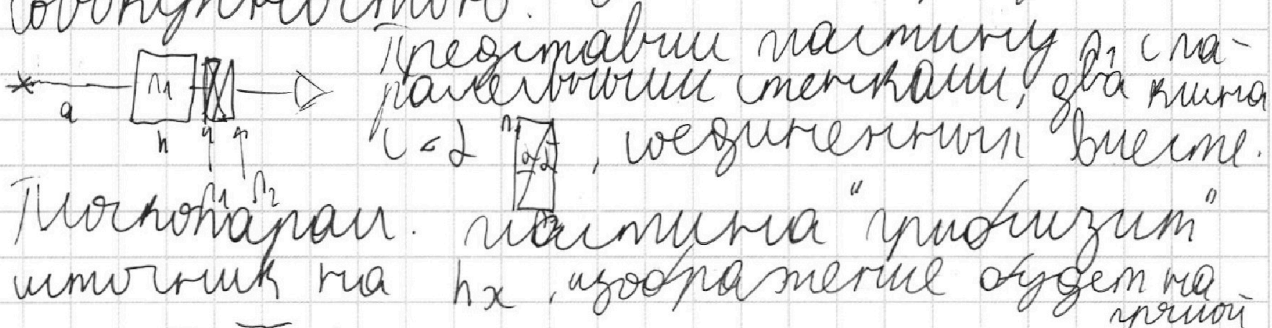 совокупностью.
Представим пластину n₁ с па-
a n₁ h n₁ n₂ ралельными стенками, два клина
с α , соединенных вместе.
Плоскопарал. пластина "приблизит"
источник на hx, изображение будет на
прямой